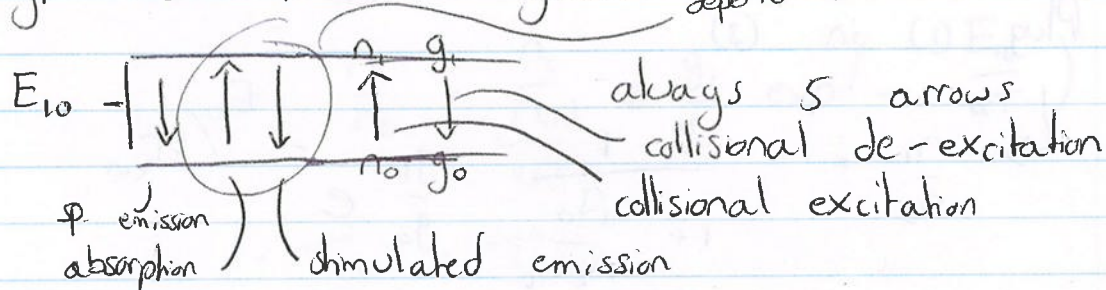 n₁ g₁
E₁₀
always 5 arrows
collisional de-excitation
n₀ g₀
collisional excitation
sp. emission
absorption
stimulated emission